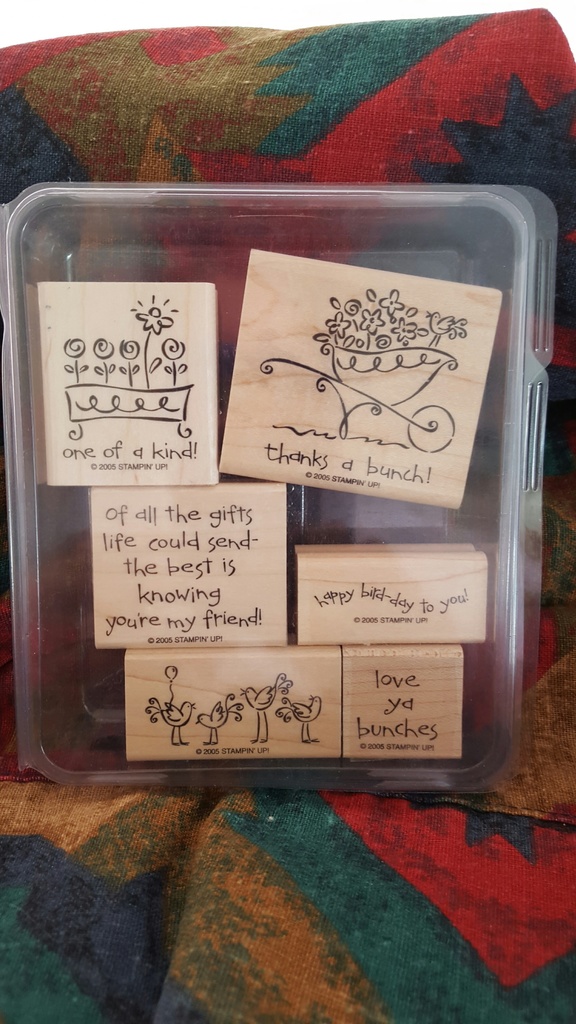 one of a kind!
© 2005 STAMPIN' UP!
thanks a bunch!
© 2005 STAMPIN' UP!
of all the gifts
life could send-
the best is
knowing
you're my friend!
© 2005 STAMPIN' UP!
happy bird-day to you!
© 2005 STAMPIN' UP!
© 2005 STAMPIN' UP!
love
ya
bunches
© 2005 STAMPIN' UP!